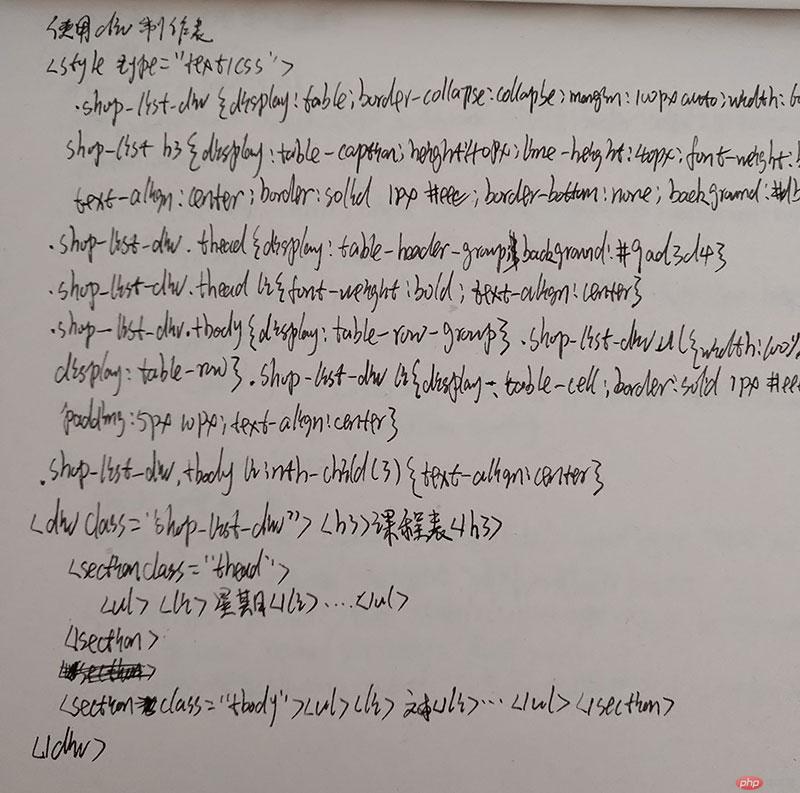 使用div制作表
<style type="text/css">
.shop-list-div{display:table;border-collapse:collapse;margin:100px auto;width:60
shop-list h3{display:table-caption;height:40px;line-height:40px;font-weight:b
text-align:center;border:solid 1px #eee;border-bottom:none;background:#db
.shop-list-div.thead{display:table-header-group;background:#9ad3d4}
.shop-list-div.thead li{font-weight:bold;text-align:center}
.shop-list-div.tbody{display:table-row-group} .shop-list-div ul{width:100%
display:table-row} .shop-list-div li{display:table-cell;border:solid 1px #eee
padding:5px 10px;text-align:center}
.shop-list-div.tbody li:nth-child(3){text-align:center}
<div class="shop-list-div"> <h3>课程表</h3>
<section class="thead">
<ul> <li>星期日</li>....</ul>
</section>
<section class="tbody"><ul><li>文本</li>...</ul></section>
</div>
php